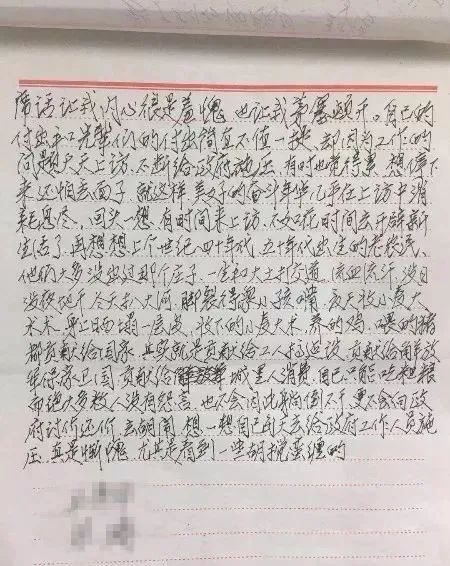 席话让我内心很是羞愧 也让我茅塞顿开。自己的
付出和先辈们的付出简直不值一提、却因为工作的
问题天天上访、不断给政府施压 有时也觉得累 想停下
来 还怕丢面子 就这样 美好的奋斗年华几乎在上访中消
耗怠尽、回头一想 有时间来上访、不如花时间去开辟新
生活了 再想想上个世纪四十年代、五十年代出生的老农民、
他们大多没出过那个庄子、一生和大土打交道、流血流汗、没日
没夜 冬天扒大河、脚裂得象小孩嘴、夏天收小麦大
水术、身上晒塌一层皮、收下的小麦大术、养的鸡、喂的猪
都贡献给国家、其实就是贡献给工人搞建设、贡献给解放
军保家卫国、贡献给 城里人消费、自己只能吃粗粮
而绝大多数人没有怨言 也不会因此躺倒不干 更不会向政
府讨价还价、去胡闹、想一想自己天天去给政府工作人员施
压、真是惭愧、尤其是看到一些胡搅蛮缠的